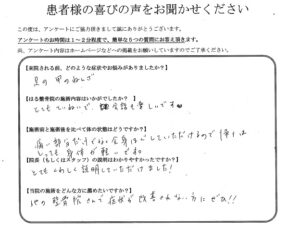 患者様の喜びの声をお聞かせください
この度は、アンケートにご協力頂きまして誠にありがとうございます。
アンケートのお時間は1～2分程度で、簡単な5つの質問にお答え頂きます。
尚、アンケート内容はホームページなどへの掲載をお願いしていますのでご了承ください。
【来院される前、どのような症状でお悩みがありましたか？】
足の甲のねんざ
【はる整骨院の施術内容はいかがでしたか？】
とてもていねいで、会話も楽しいです♥
【施術前と施術後を比べて体の状態はどうですか？】
痛い部分だけでなく全身ほぐしていただけるので帰りは
とても身体が軽いですね
【院長（もしくはスタッフ）の説明はわかりやすかったですか？】
とてもくわしく説明していただけました！
【当院の施術をどんな方に薦めたいですか？】
他の整骨院さんで症状が改善されない方にぜひ!!